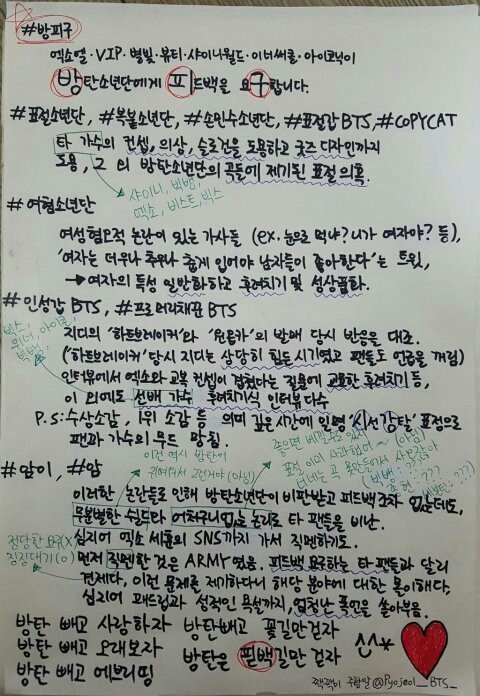 #방피구
엑소엘·VIP·별빛·뷰티·샤이니월드·이너써클·아이코닉이
방탄소년단에게 피드백을 요구합니다.
#표절소년단, #복붙소년단, #손민수소년단, #표절갑BTS, #COPYCAT
타 가수의 컨셉, 의상, 슬로건을 도용하고 굿즈 디자인까지
도용, 그 외 방탄소년단의 곡들에 제기된 표절 의혹.
샤이니, 빅뱅,
엑소, 비스트, 빅스
#여혐소년단
여성혐오적 논란이 있는 가사들 (ex. 눈으로 먹냐? 니가 여자야? 등),
'여자는 더우나 추우나 춥게 입어야 남자들이 좋아한다'는 트윗,
→여자의 특성 일반화하고 후려치기 및 성상품화.
#인성갑BTS, #프로머리채잡BTS
빅스,
위너, 아이콘,
빅뱅,
지디의 '하트브레이커'와 '의 발매 당시 반응을 대조.
(하트브레이커' 당시 지디는 상당히 힘든 시기였고 팬들도 언급을 꺼림)
인터뷰에서 엑소와 교복 컨셉이 겹쳤다는 질문에 교묘한 후려치기 등,
이 외에도 선배 가수 후려치기식 인터뷰 다수
P.S:수상소감, 1위 소감 등 의미 깊은 시간에 일명 '시선강탈' 표정으로
팬과 가수의 무드 망침.
#앞이, #앞
이건 역시 방탄이
귀여워서 그런거야 (아님)
표절 이미 사과했어~ (아님)
이러한 논란들로 인해 방탄소년단이 비판받고 피드백조차 없는데도,
무분별한 쉴드와 어처구니없는 논리로 타 팬들을 비난.
심지어 엑소 세훈의 SNS까지 가서 직멘하기도.
정당한 요구(X)
징징대기(O)
먼저 직멘한 것은 ARMY였음. 피드백 요구하는 타 팬들과 달리
견제다, 이런 문제를 제기하다니 해당 분야에 대한 몰이해다,
심지어 패드립과 성적인 욕설까지, 엄청난 폭언을 쏟아부음.
방탄 빼고 사랑하자 방탄빼고 꽃길만걷자
방탄 빼고 오래보자 방탄은 핀백길만 걷자
방탄 빼고 에브리띵
짹짹이 주황달 @Pyojeol_BTS_